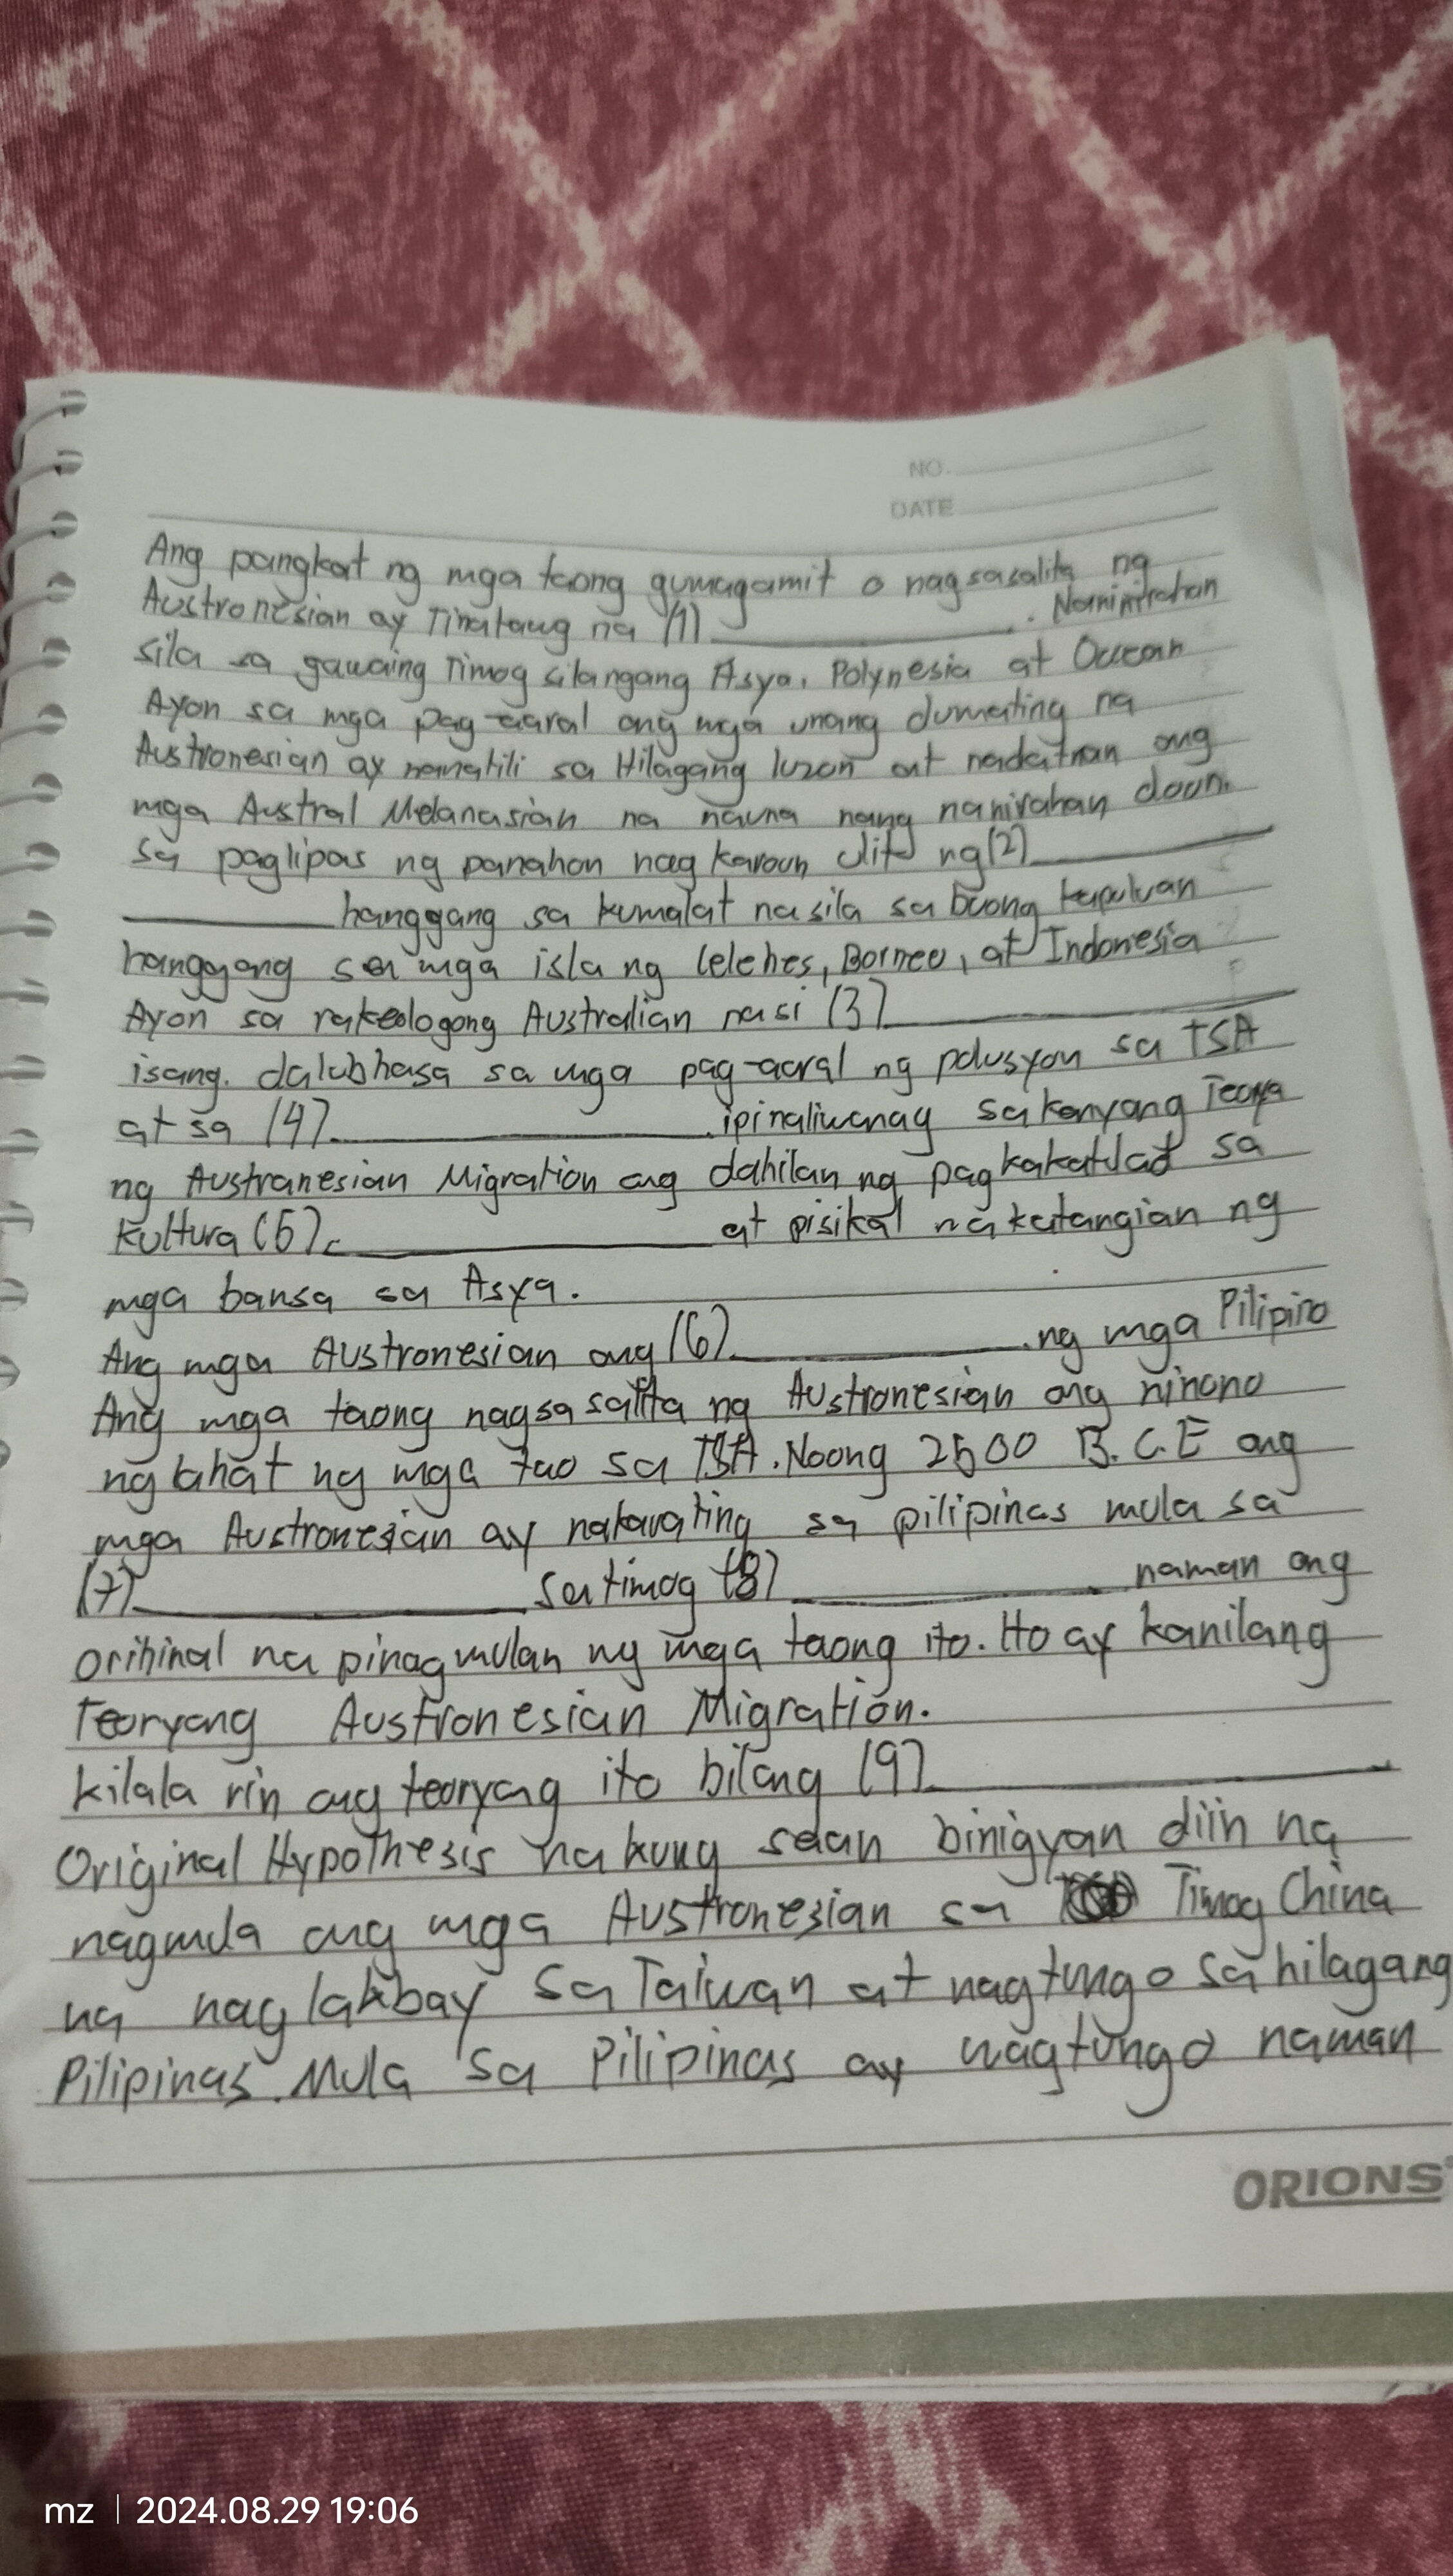 NO.
DATE
Ang pangkat ng mga taong gumagamit o nagsasalita ng
Austronesian ay Tinatawg na (1) ____________. Naninirahan
sila sa gawaing Timog silangang Asya, Polynesia at Ocean
Ayon sa mga pag-aaral ang mga unang dumating na
Austronesian ay nanatili sa Hilagang luzon at nadatnan ang
mga Austral Melanasian na nauna nang nanirahan doon.
sa paglipas ng panahon nagkaroon ulit ng (2) ____________
____________ hanggang sa kumalat na sila sa buong kapuluan
hanggang sa mga isla ng Celebes, Borneo, at Indonesia
Ayon sa rakeologong Australian na si (3) ____________
isang. dalubhasa sa mga pag-aaral ng polusyon sa TSA
at sa (4) ____________. ipinaliwanag sa kanyang Teorya
ng Austranesian Migration ang dahilan ng pagkakatulad sa
kultura (5) ____________ at pisikal na katangian ng
mga bansa sa Asya.
Ang mga Austronesian ang (6) ____________. ng mga Pilipino
Ang mga taong nagsasalita ng Austronesian ang ninono
ng lahat ng mga tao sa TSA. Noong 2500 B.C.E ang
mga Austronesian ay nakarating sa pilipinas mula sa
(7) ____________ sa timog (8) ____________ naman ang
orihinal na pinagmulan ng mga taong ito. Ito ay kanilang
Teoryang Austronesian Migration.
kilala rin ang teoryang ito bilang (9) ____________
Original Hypothesis na kung saan binigyan diin na
nagmula ang mga Austronesian sa Timog China
na naglakbay sa Taiwan at nagtungo sa hilagang
Pilipinas. Mula sa Pilipinas ay nagtungo naman
ORIONS
mz | 2024.08.29 19:06